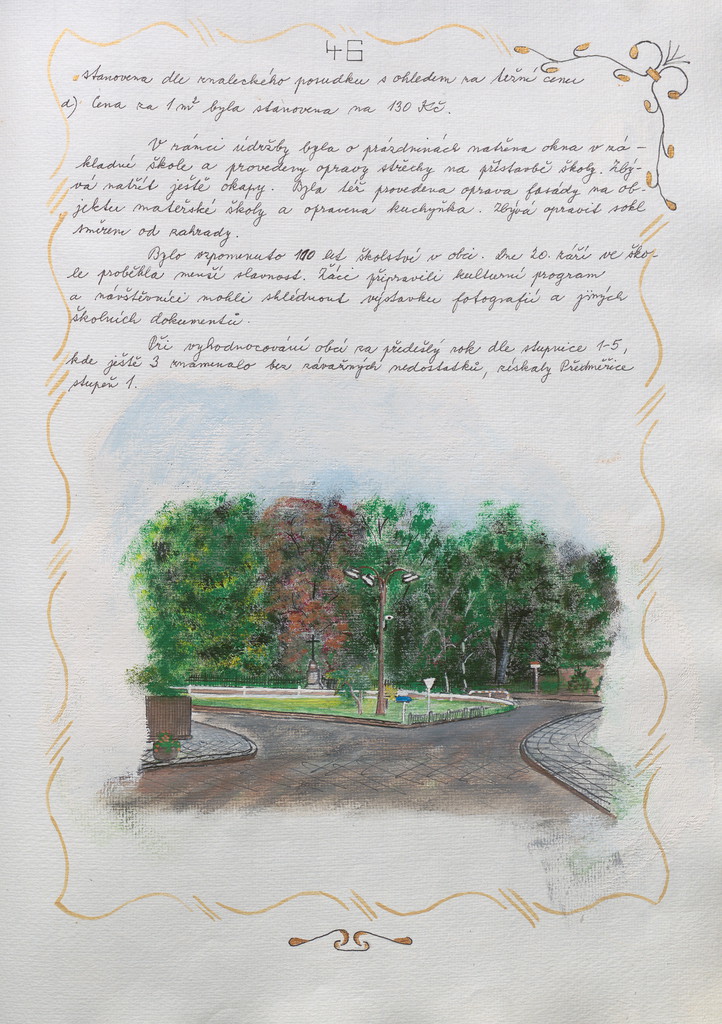 46
stanovena dle znaleckého posudku s ohledem na tržní cenu
d) Cena za 1 m² byla stanovena na 130 Kč.
V rámci údržby byla o prázdninách natřena okna v zá-
kladní škole a provedeny opravy střechy na přístavbě školy. Zbý-
vá natřít ještě okapy. Byla též provedena oprava fasády na ob-
jektu mateřské školy a opravena kuchyňka. Zbývá opravit sokl
směrem od zahrady.
Bylo vzpomenuto 110 let školství v obci. Dne 20. září ve ško-
le proběhla menší slavnost. Žáci připravili kulturní program
a návštěvníci mohli shlédnout výstavku fotografií a jiných
školních dokumentů.
Při vyhodnocování obcí za předešlý rok dle stupnice 1-5,
kde ještě 3 znamenalo bez závažných nedostatků, získaly Předměřice
stupeň 1.